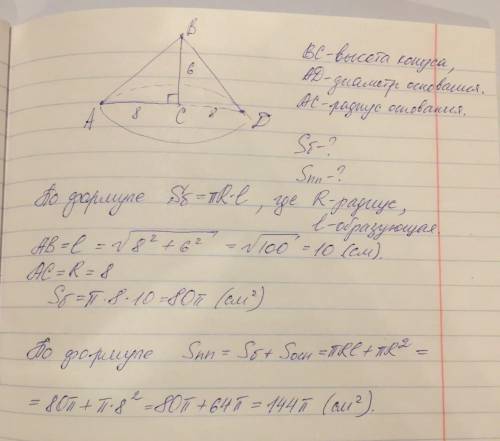 B
6
A
8
C
8
D
BC-высота конуса,
AD-диаметр основания.
AC-радиус основания.
Sб-?
Sпп-?
По формуле Sб=πR·l, где R-радиус,
l-образующая.
AB=l=√8²+6²=√100=10 (см).
AC=R=8
Sб=π·8·10=80π (см²)
По формуле Sпп=Sб+Sосн=πRl+πR²=
=80π+π·8²=80π+64π=144π (см²).